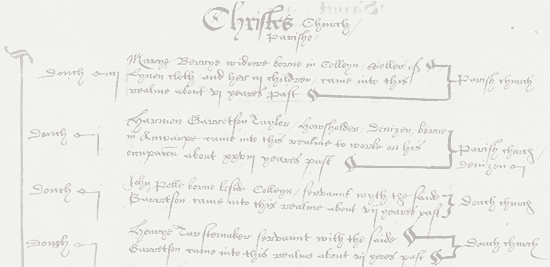 Christes Church
Parishe
Marye Berrye widowe borne in Colleyn, Seller of
Lynen cloth, and her iii children, came into this
realme about vi yeares past
Douch
Parish church
Harmon Garretson Taylor, Housholder, Denizen, borne
in Anwarpe came into this realme to worke on his
occupacōn about xxvii yeares past
Douch
Parish church
denizen
John Polle borne beside Colleyn, servaunt wyth the saide
Garretson came into this realme about vii yeares past
Douch
Douch church
Henrye servaunt with the saide
Garretson came into this realme about vi yeares past
Douch
Douch church